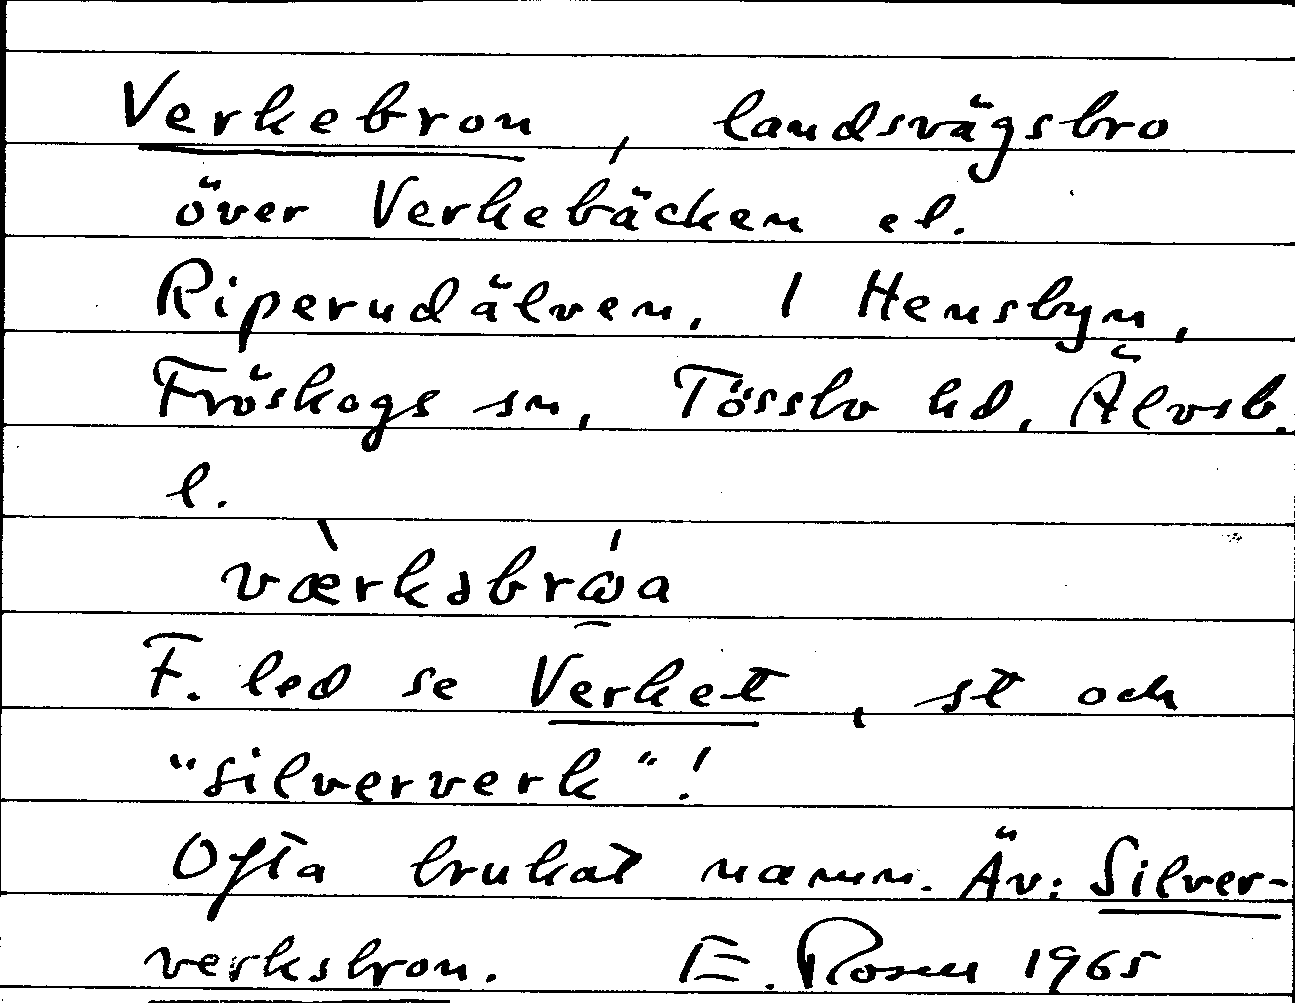 Verkebron, landsvägsbro
över Verkebäcken el.
Riperudälven. I Hensbyn,
Fröskogs sn, Tössbo hd, Älvsb.
l.
F. led se Verket, st och
"silververk"!
Ofta brukat namn. Äv: Silver-
verksbron. E. Rosen 1965